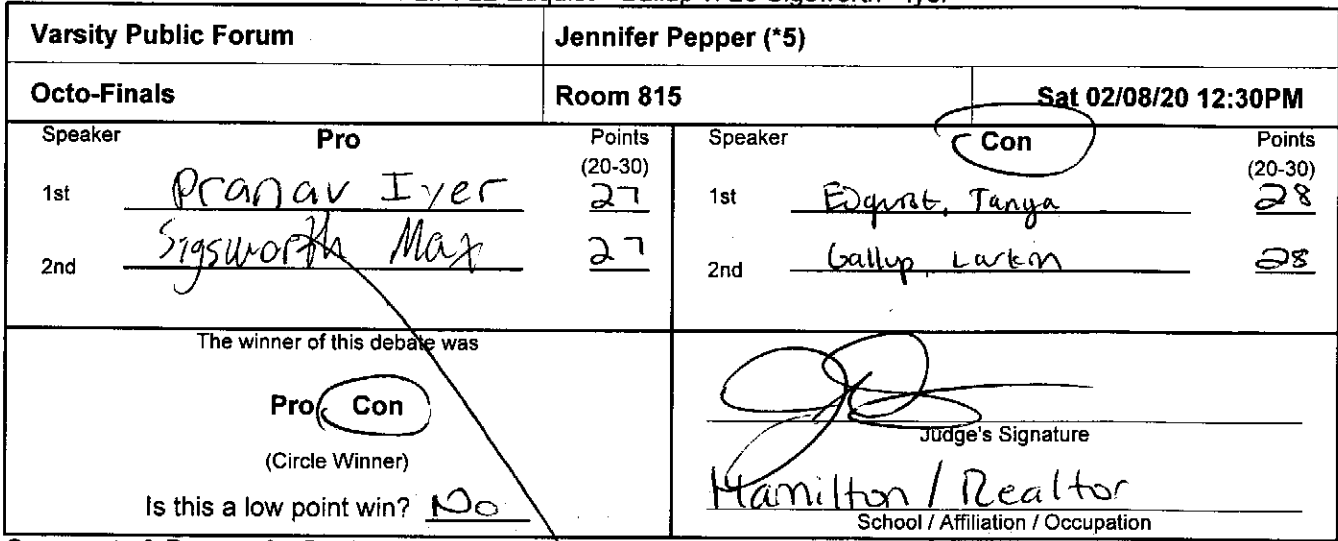 Varsity Public Forum
Jennifer Pepper (*5)
Octo-Finals
Room 815
Sat 02/08/20 12:30PM
Speaker Pro Points
(20-30)
1st Pranav Iyer 27
2nd Sigsworth Max 27
Speaker Con Points
(20-30)
1st Edqvist, Tanya 28
2nd Gallup, Larkin 28
The winner of this debate was
Pro Con
(Circle Winner)
Is this a low point win? No
Judge's Signature
Hamilton / Realtor
School / Affiliation / Occupation